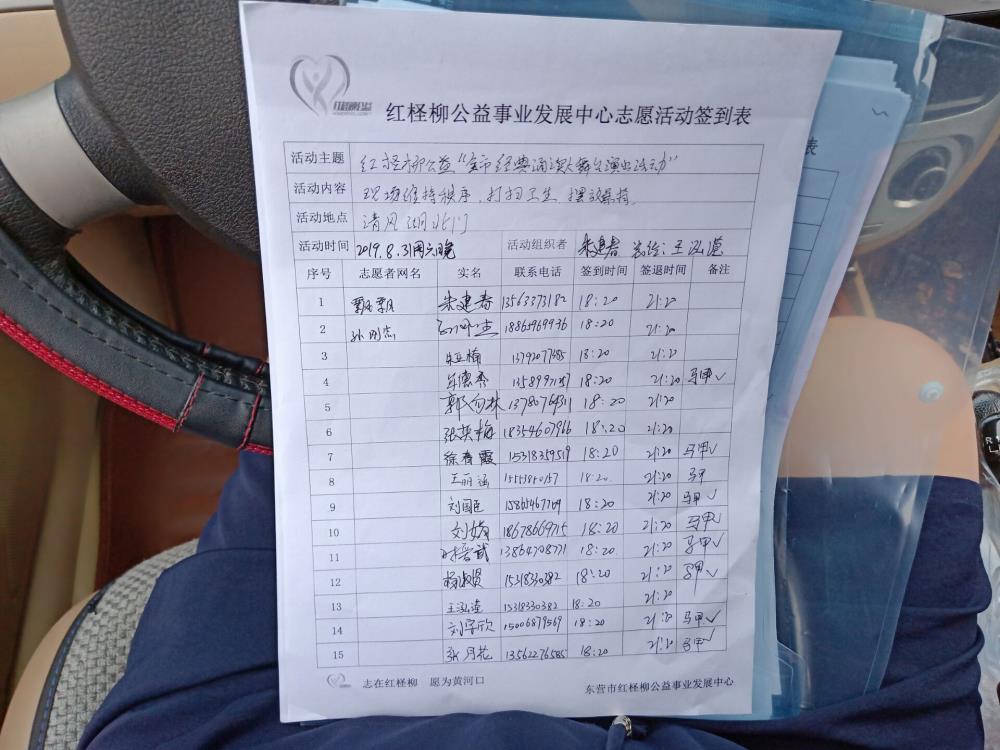 红柽柳公益
红柽柳公益事业发展中心志愿活动签到表
活动主题 红柽柳公益“全市经典诵读大舞台演出活动”
活动内容 现场维持秩序、打扫卫生 摆放桌椅
活动地点 清风湖北门
活动时间 2019.8.31周六晚 活动组织者 朱建春 王泓
序号 志愿者网名 实名 联系电话 签到时间 签退时间 备注
1 朱建春 13563373182 18:20 21:20
2 孙刚杰 18865969936 18:20 21:20
3 13792077585 18:20 21:20
4 牟德秀 18:20 21:20 马甲✓
5 郭 林 13780764311 18:20 21:20
6 张英梅 18354607966 18:20 21:20
7 徐春霞 15318359519 18:20 21:20 马甲✓
8 王丽 18:20 21:20 马甲
9 刘国臣 15865467769 18:20 21:20 马甲✓
10 刘娟 18678669715 18:20 21:20 马甲✓
11 13864708771 18:20 21:20 马甲✓
12 杨淑贤 15318330382 18:20 21:20 马甲✓
13 王泓 15318330382 18:20 21:20
14 刘宇欣 15006879569 18:20 21:20 马甲✓
15 张月花 13562276585 18:20 21:20 马甲✓
志在红柽柳 愿为黄河口 东营市红柽柳公益事业发展中心
表